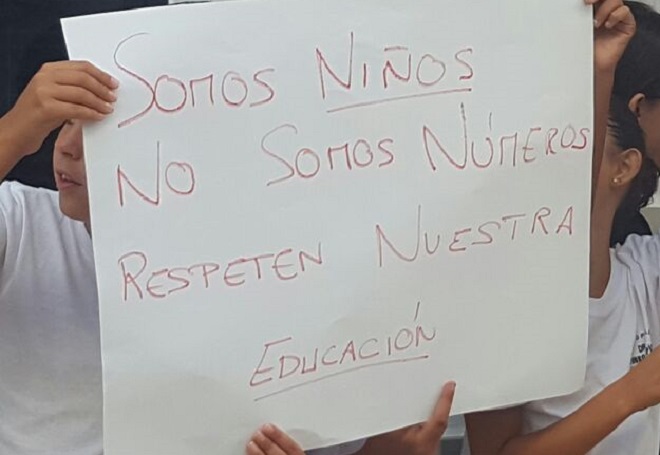 SOMOS NIÑOS
NO SOMOS NÚMEROS
RESPETEN NUESTRA
EDUCACIÓN